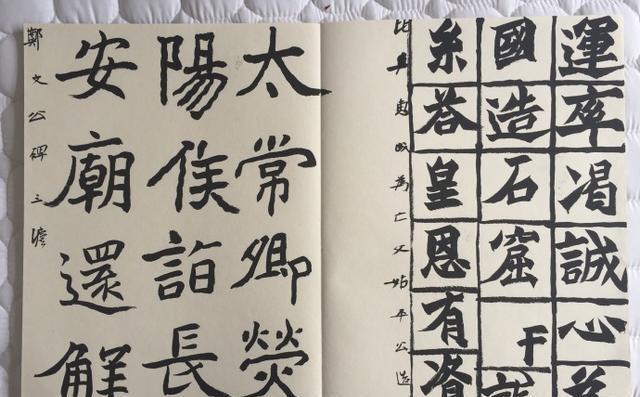 運率渴誠心
國造石窟于
糸荅皇恩有資
比丘惠成為亡父始平公造
太常卿熒
陽侯詣長
安廟還解
鄭文公碑